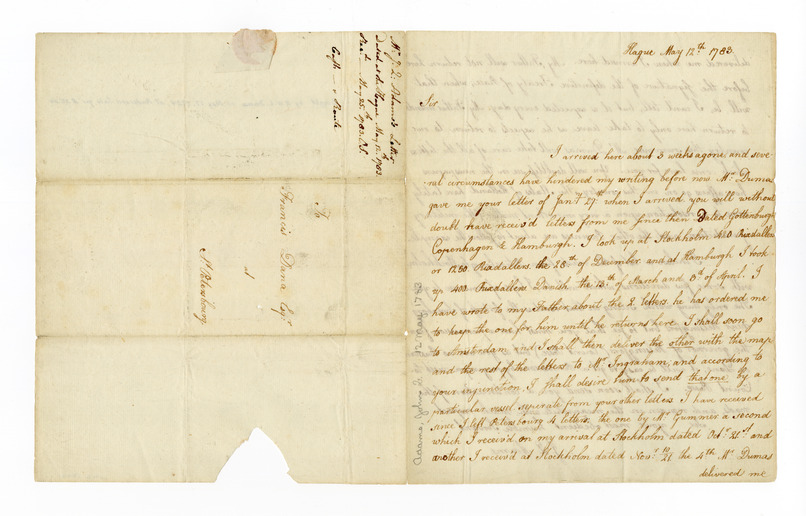 Mr. J. Q. Adams's Letter
Dated at the Hague May 12th 1783
Recd. May 25th 1783 O.S.
To
Francis Dana Esqr.
at
St. Petersbourg.
Adams, John Q. 12 May 1783
Hague May 12th 1783.
Sir
I arrived here about 3 weeks agone, and seve-
ral circumstances have hindered my writing before now Mr. Dumas
gave me your letter of Jany. 27th when I arrived you will without
doubt have receiv'd letters from me since then Dated Gottenburg
Copenhagen & Hamburgh. I took up at Stockholm 420 Rixdallers
or 1250 Rixdallers the 28th of December and at Hamburgh I took
up 400 Rixdallers Danish the 13th of March and 5th of April. I
have wrote to my Father about the 2 letters he has ordered me
to keep the one for him until he returns here. I shall soon go
to Amsterdam and I shall then deliver the other with the map
and the rest of the letters to Mr. Ingraham, and according to
your injunction I shall desire him to send that one by a
particular vessel seperate from your other letters I have received
since I left Petersbourg 4 letters, the one by Mr. Gummer a second
which I receiv'd on my arrival at Stockholm dated Octr. 21st and
another I receiv'd at Stockholm dated Novr. 10/21 the 4th Mr. Dumas
delivered me